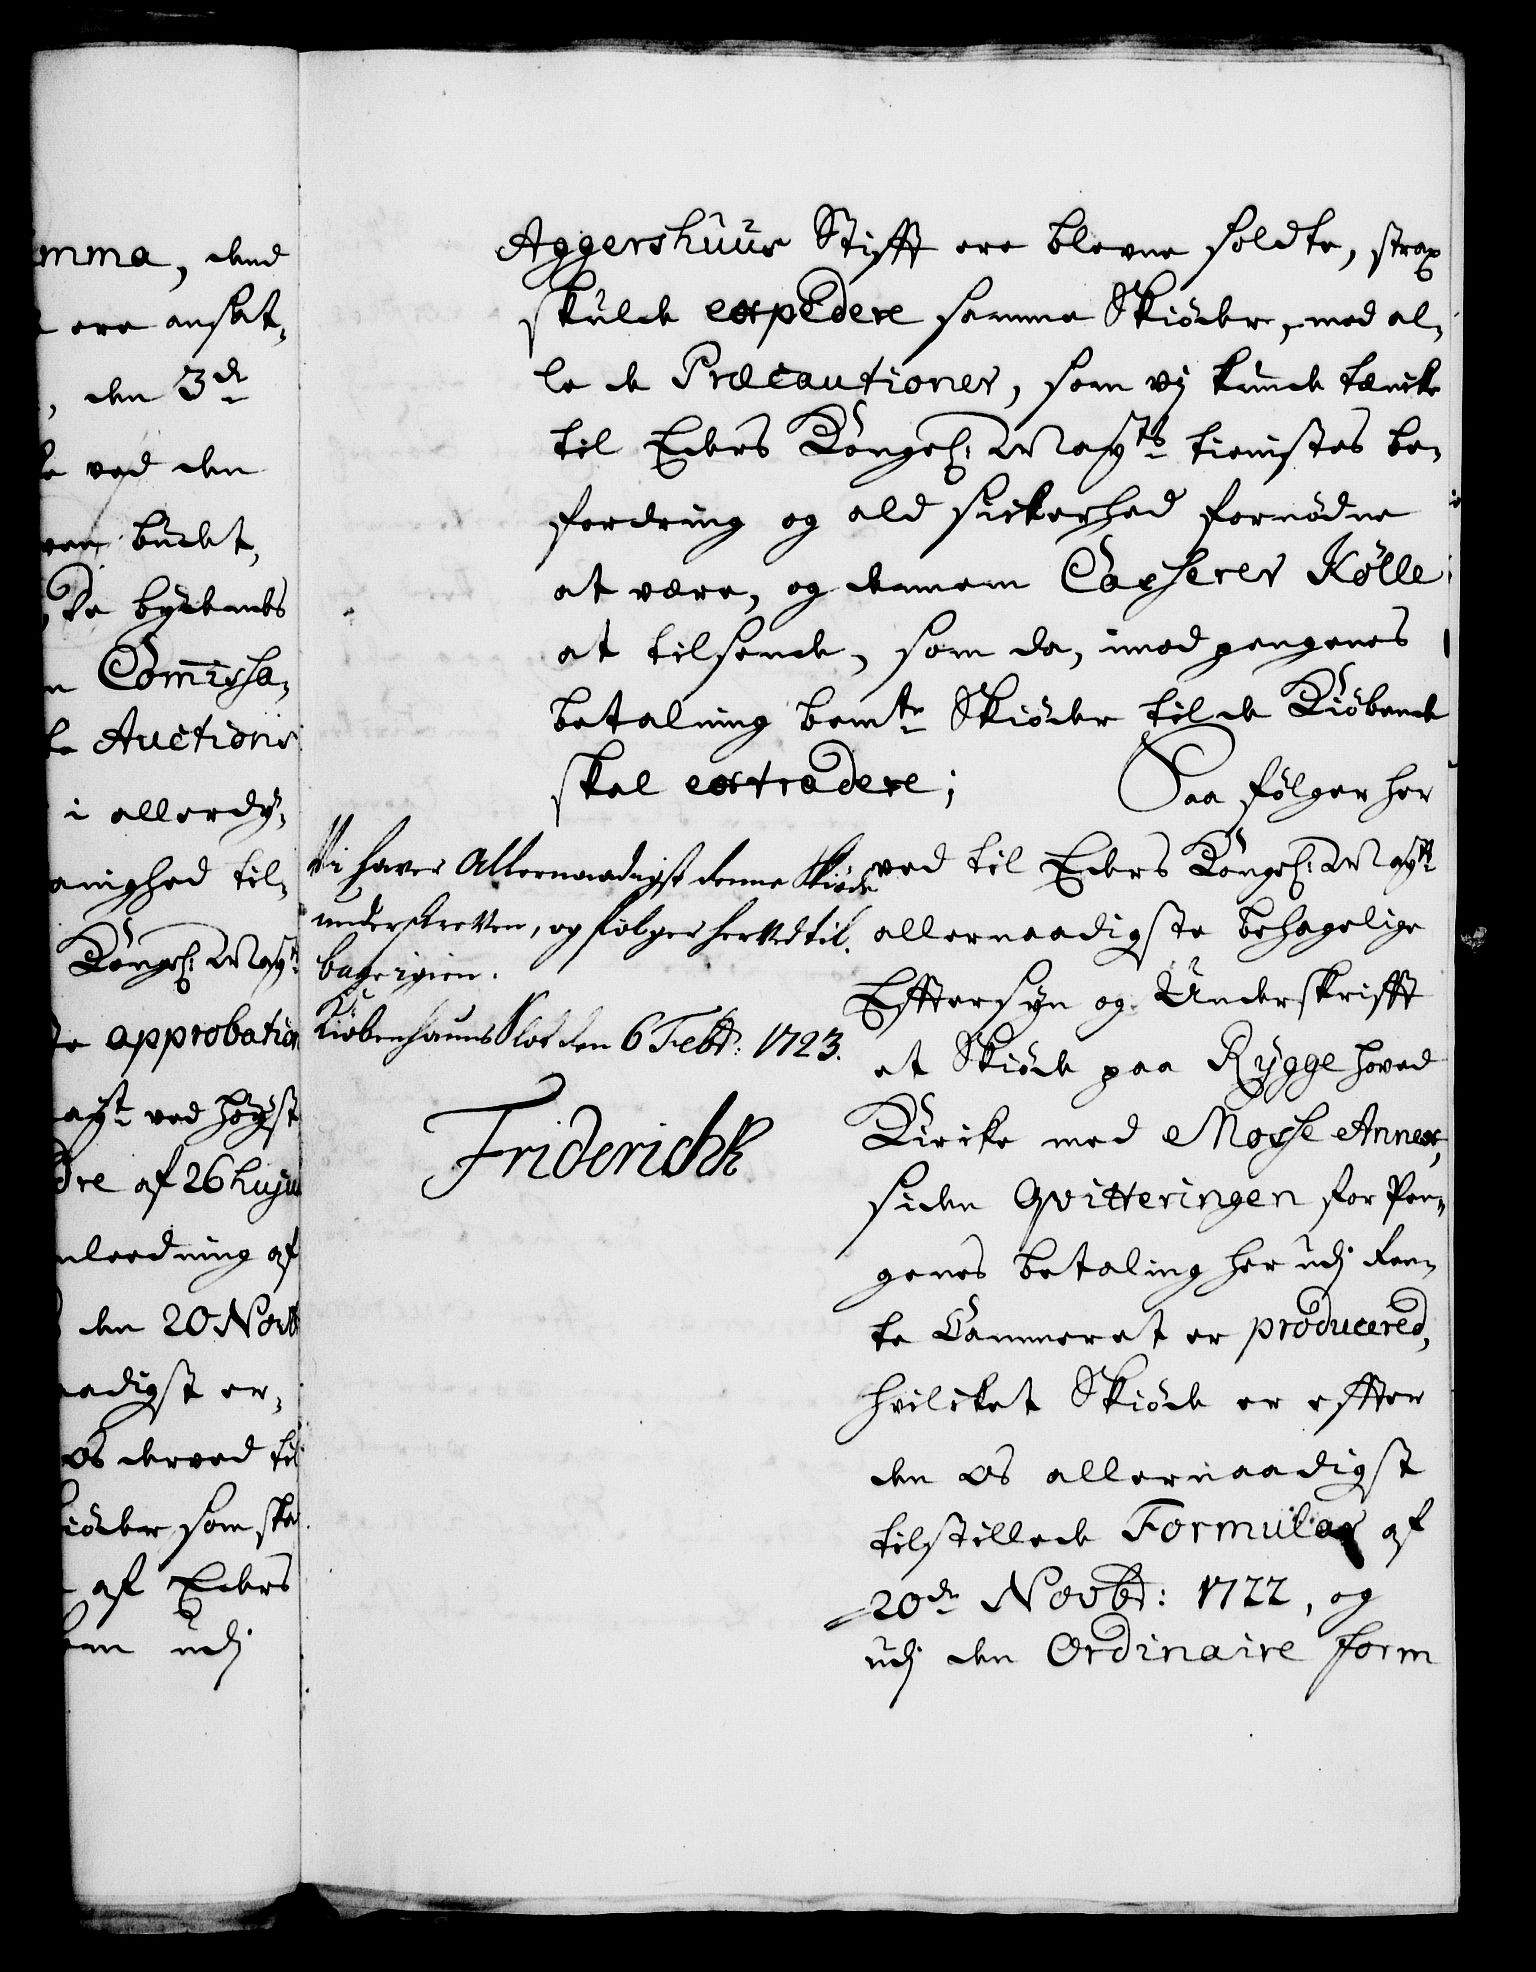 mma, dend
ere ansat,
, den 3de
ved den
budet,
De bydendes
Com̅issa,
Auctions
i allerdy,
anighed til,
Kongel: Mayts
approbation
Mayt ved høyst
dre af 26 huju
nleedning af
den 20 Novb
aadigst er,
os derved til
iøder som ska
af Eders
udj
Aggershuus Stifft ere blevne soldte, strax
skulde expedere samme Skiøder, med al,
le de Præcautioner, som vj kunde tænke
til Eders Kongel: Mayts tienistes be,
fordring og ald sickerhed fornødne
at være, og dennem Casserer Kølle
at tilsende, som da, imod pengenes
betalning bemte Skiøder til de Kiøbende
skal extradere; Saa følger her
ved til Eders Kongel: Mayts
allernaadigste behagelige
Efftersyn og Underskrifft
et Skiøde paa Rygge hoved
Kircke med Mosse Annex,
siden Qvitteringen for Pen,
genes betaling her udj Ren,
te Cammeret er producered,
hvilcket Skiøde er effter
den os allernaadigst
tilstillede Formular af
20de Novbr: 1722, og
udj den Ordinaire form
Vi haver Allernaadigst denne Skiøde
underskreven, og følger herved til,
bage igien.
Kiøbenhauns Slot den 6 Febr: 1723.
Friderich R